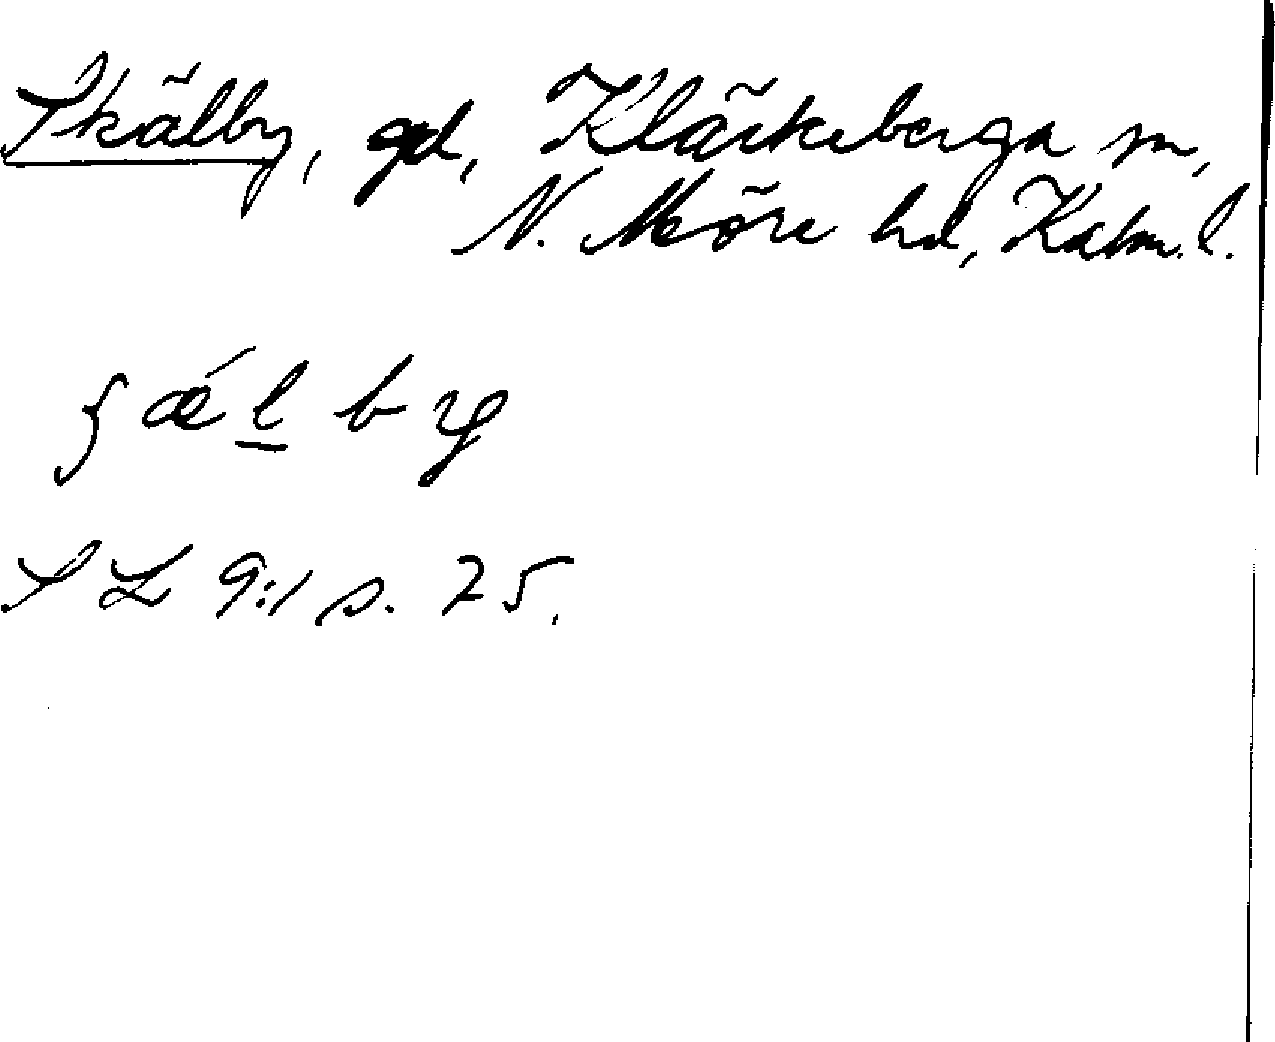 Skälby, gd, Kläckeberga sn,
N. Möre hd, Kalm. l.
ʂǽlby
SL 9:1 s. 25.